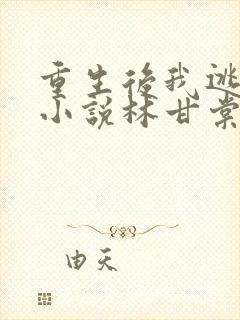 重生後我逃
小説林甘棠
由天